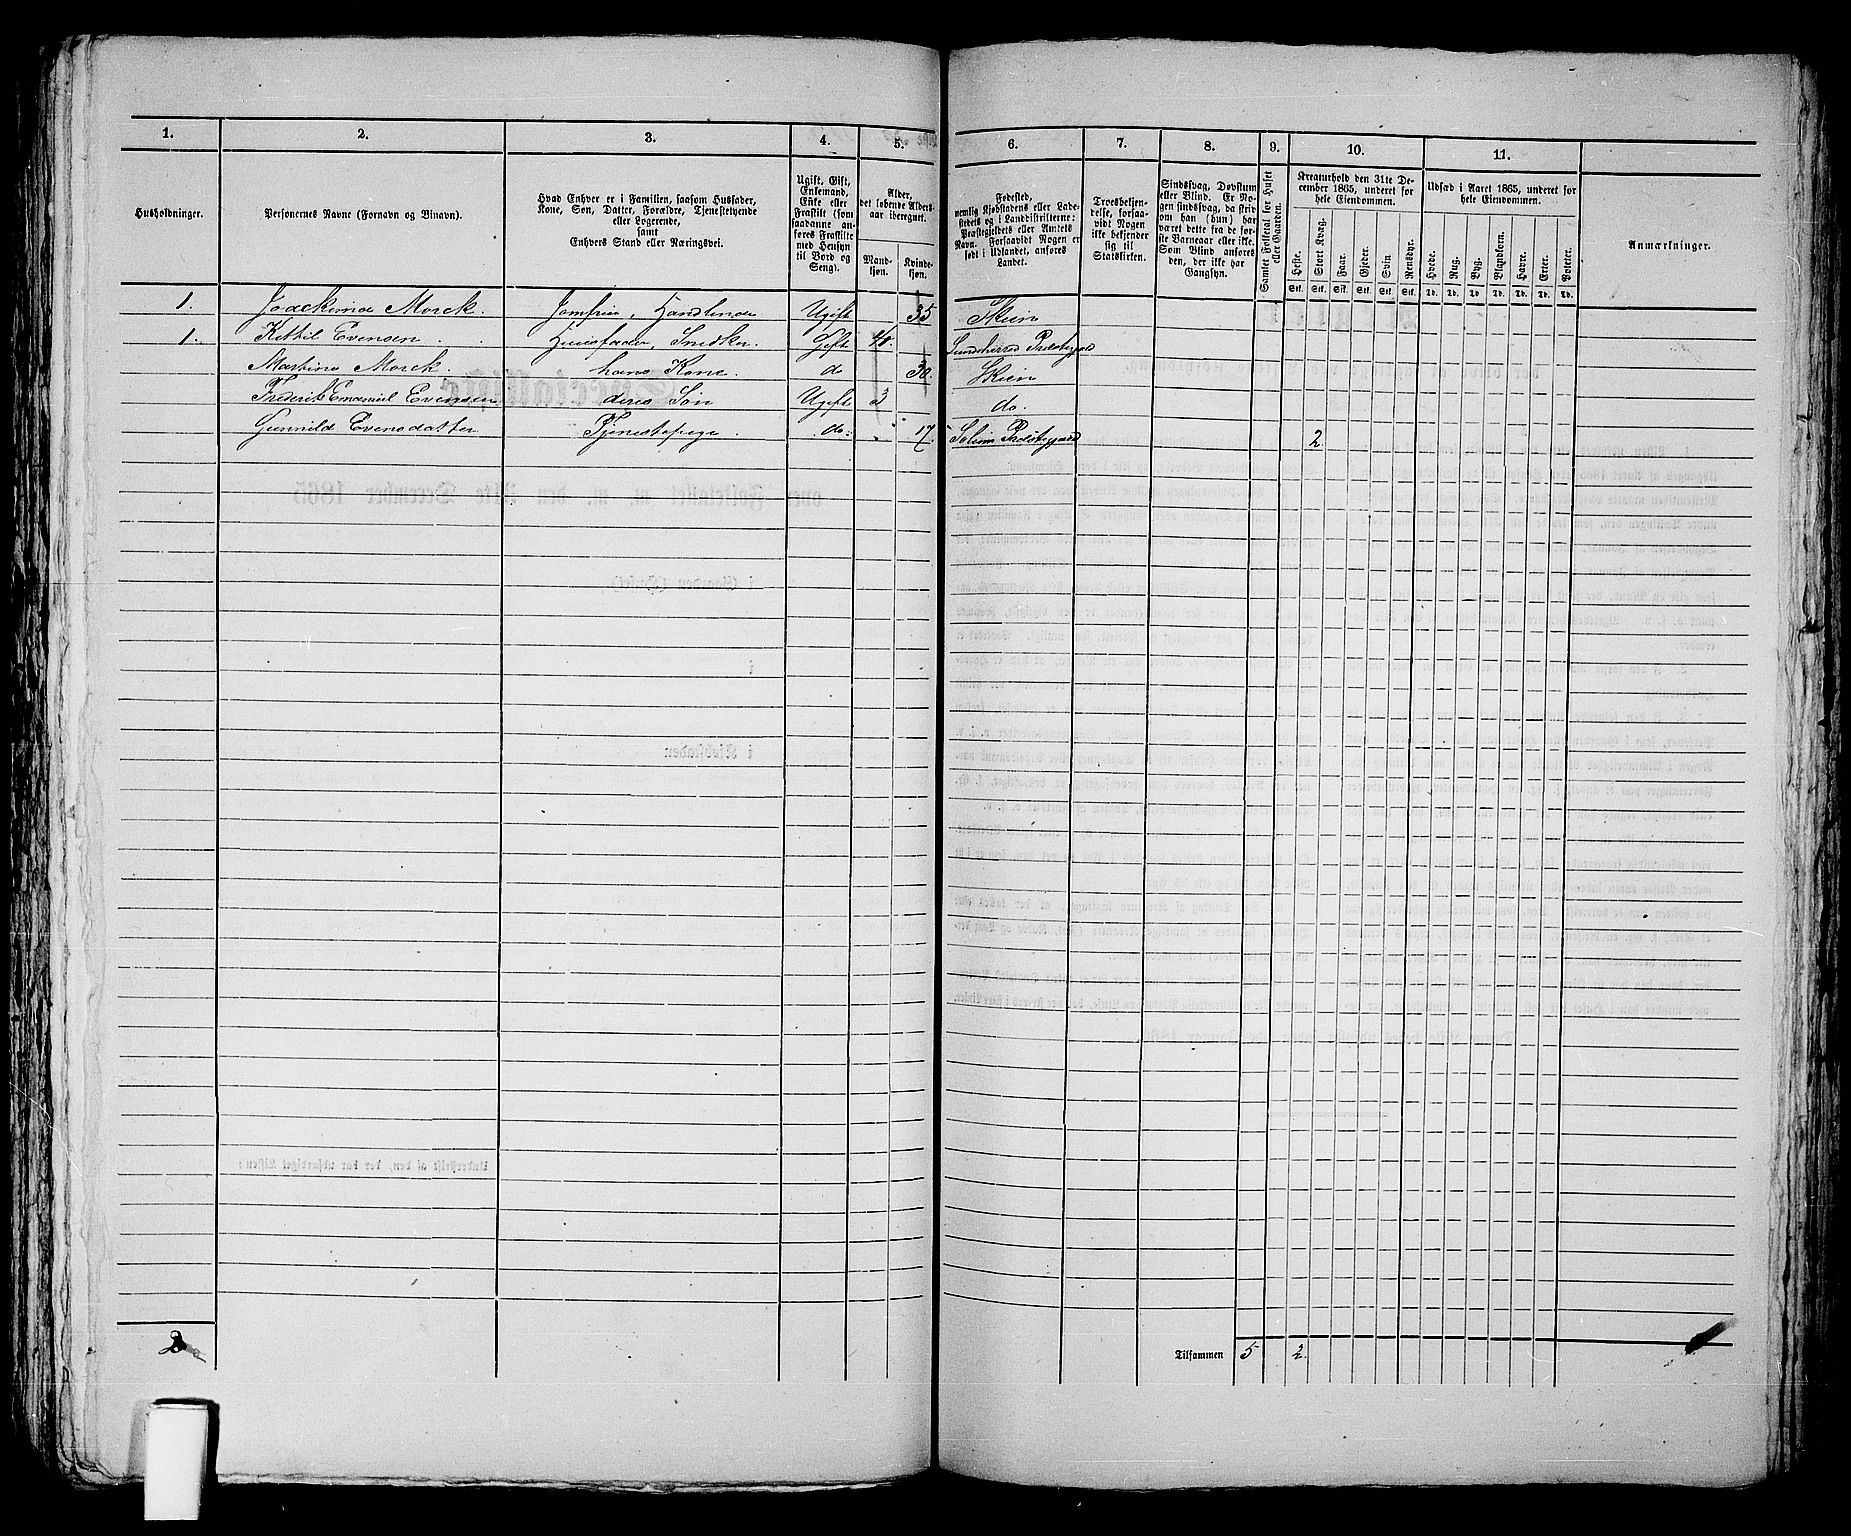 1. 2. 3. 4. 5. 6. 7. 8. 9. 10. 11.
Husholdninger.
Personernes Navne (Fornavn og Binavn).
Hvad Enhver er i Familien, saasom Husfader,
Kone, Søn, Datter, Forældre, Tjenestetyende
eller Logerende,
samt
Enhvers Stand eller Næringsvei.
Ugift, Gift,
Enkemand,
Enke eller
Fraskilt (som
saadanne an-
føres Fraskilte
med Hensyn
til Bord og
Seng).
Alder,
det løbende Alders-
aar iberegnet.
Mand-
kjøn.
Kvinde-
kjøn.
Fødested,
nemlig Kjøbstadens eller Lade-
stedets og i Landdistrikterne:
Præstegjeldets eller Amtets
Navn. Forsaavidt Nogen er
født i Udlandet, anføres
Landet.
Troesbekjen-
delse, forsaa-
vidt Nogen
ikke bekjender
sig til
Statskirken.
Sindssvag, Døvstum
eller Blind. Er No-
gen sindssvag, da skriv
om han (hun) har
været dette fra de før-
ste Barneaar eller ikke.
Som Blind anføres
den, der ikke har
Gangsyn.
Samlet Folketal for Huset
eller Gaarden.
Kreaturhold den 31te De-
cember 1865, underet for
hele Eiendommen.
Heste. Stort Kvæg. Faar. Gjeder. Svin Rensdyr.
Stk. Stk. Stk. Stk. Stk. Stk.
Udsæd i Aaret 1865, underet for
hele Eiendommen.
Hvede. Rug. Byg. Blandkorn. Havre. Erter. Poteter.
Td. Td. Td Td. Td. Td. Td.
Anmærkninger.
1. Joackima Morck. Jomfru, Handlende Ugift 35 Skien
1. Kittil Evensen Huusfader, Snedker. Gift
Martine Morck. hans Kone. do 30. Skien
Frederik Emanuel Evensen deres Søn Ugift 3 do.
Gunnild Evensdatter Tjenestepige. do. 17. Solum Præstegjæld 2
2
Tilsammen 5 2.